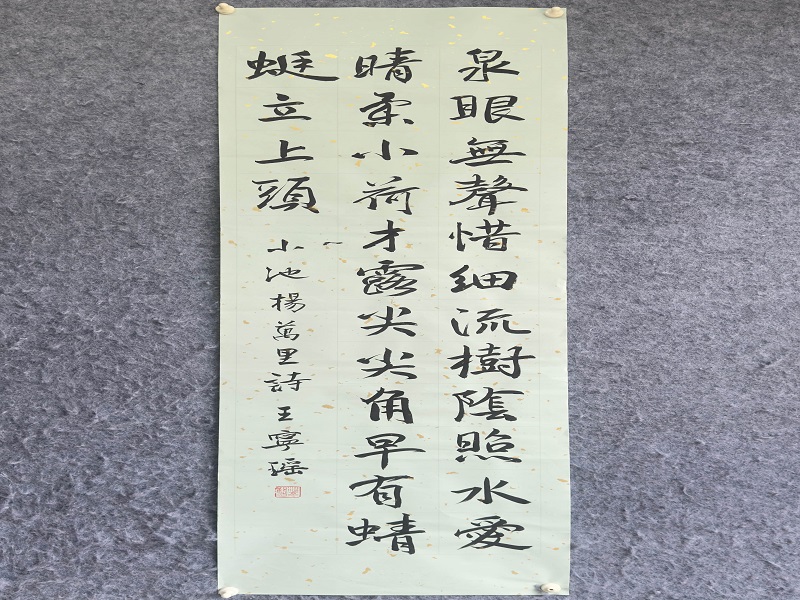 泉眼無聲惜細流樹陰照水愛
晴柔小荷才露尖尖角早有蜻
蜓立上頭
小池楊萬里詩王寧瑶